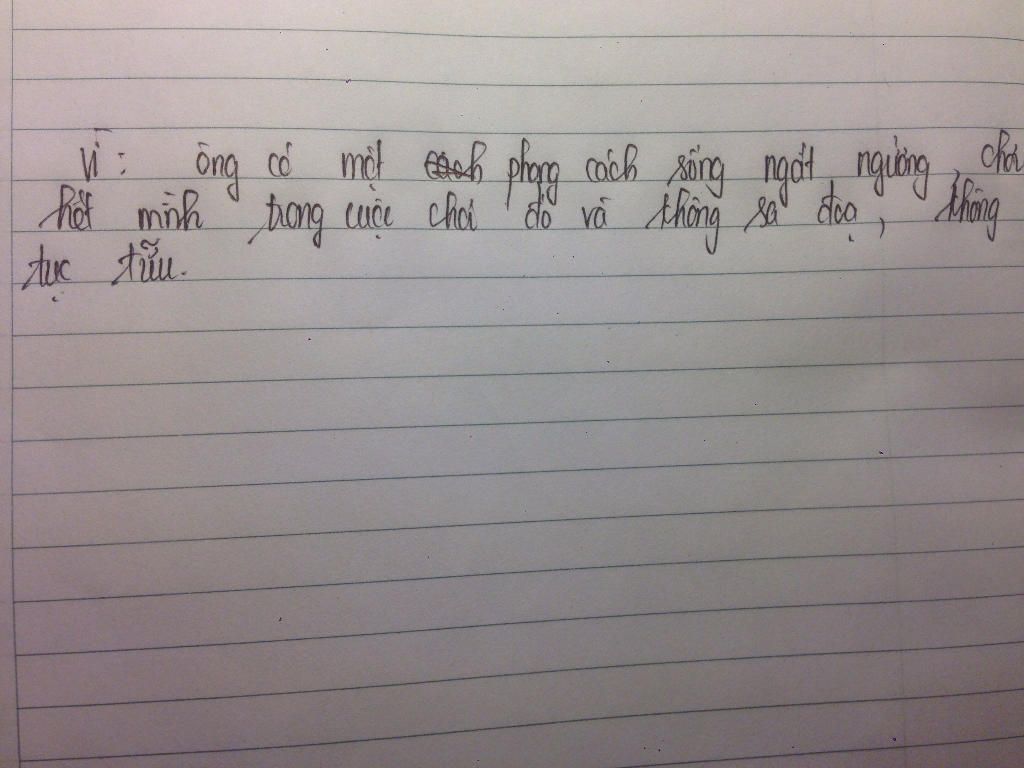 Vì : ông có một phong cách sống ngất ngưởng, chơi
hết mình trong cuộc chơi đó và không sa đoạ, không
tục tĩu.